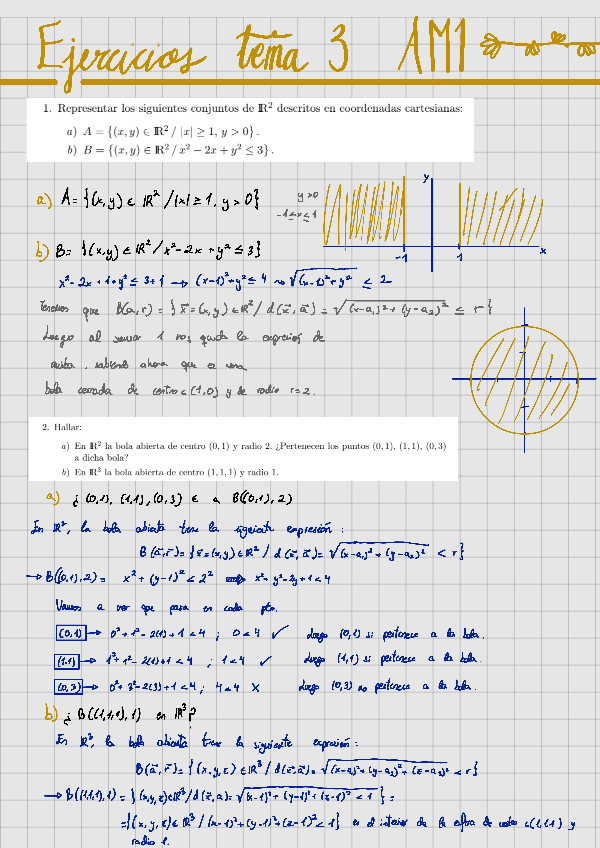 Ejercicios tema 3 AM1
1. Representar los siguientes conjuntos de ℝ² descritos en coordenadas cartesianas:
a) A = {(x, y) ∈ ℝ² / |x| ≥ 1, y > 0} .
b) B = {(x, y) ∈ ℝ² / x² − 2x + y² ≤ 3} .
a) A = {(x,y) ∈ ℝ² / |x| ≥ 1, y > 0}
y > 0
-1 ≤ x ≤ 1
y
-1
1
x
b) B = {(x,y) ∈ ℝ² / x² - 2x + y² ≤ 3}
x² - 2x + 1 + y² ≤ 3 + 1 → (x-1)² + y² ≤ 4 ⇝ √(x-1)² + y² ≤ 2
Tenemos que B(a,r) = {x⃗ = (x,y) ∈ ℝ² / d(x⃗,a⃗) = √(x-a₁)² + (y-a₂)² ≤ r}
Luego al sumar 1 nos queda la expresión de
arriba, sabiendo ahora que es una
bola cerrada de centro c(1,0) y de radio r=2.
2. Hallar:
a) En ℝ² la bola abierta de centro (0, 1) y radio 2. ¿Pertenecen los puntos (0, 1), (1, 1), (0, 3)
a dicha bola?
b) En ℝ³ la bola abierta de centro (1, 1, 1) y radio 1.
a) ¿(0,1), (1,1), (0,3) ∈ a B((0,1), 2)
En ℝ², la bola abierta tiene la siguiente expresión:
B(a⃗,r) = {x⃗ = (x,y) ∈ ℝ² / d(x⃗,a⃗) = √(x-a₁)² + (y-a₂)² < r}
→ B((0,1), 2) = x² + (y-1)² < 2² ⟹ x² + y² - 2y + 1 < 4
Vamos a ver que pasa en cada pto.
(0,1) → 0² + 1² - 2(1) + 1 < 4 ; 0 < 4 ✓ Luego (0,1) si pertenece a la bola.
(1,1) → 1² + 1² - 2(1) + 1 < 4 ; 1 < 4 ✓ Luego (1,1) si pertenece a la bola.
(0,3) → 0² + 3² - 2(3) + 1 < 4 ; 4 < 4 X Luego (0,3) no pertenece a la bola.
b) ¿B((1,1,1), 1) en ℝ³?
En ℝ³, la bola abierta tiene la siguiente expresión:
B(a⃗,r) = {(x,y,z) ∈ ℝ³ / d(x⃗,a⃗) = √(x-a₁)² + (y-a₂)² + (z-a₃)² < r}
→ B((1,1,1), 1) = {(x,y,z) ∈ ℝ³ / d(x⃗,a) = √(x-1)² + (y-1)² + (z-1)² < 1} =
= {(x,y,z) ∈ ℝ³ / (x-1)² + (y-1)² + (z-1)² < 1} es el interior de la esfera de centro c(1,1,1) y
radio 1.